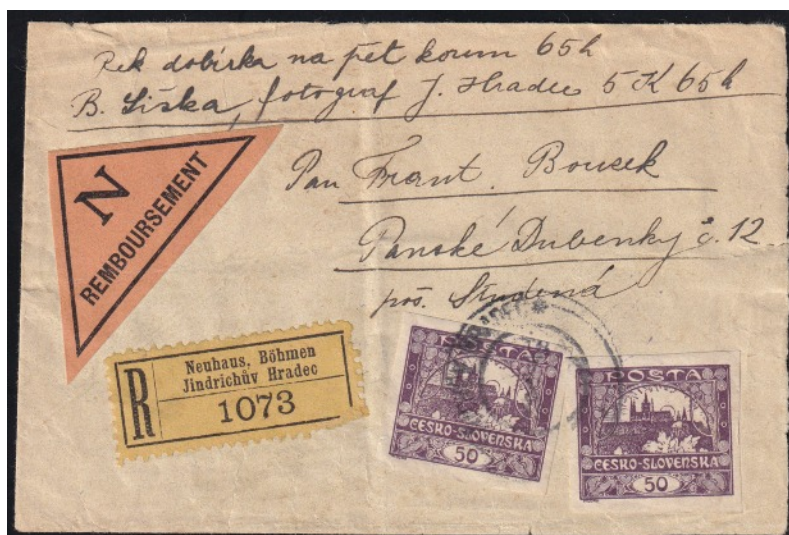 Rek dobírka na pět korun 65h
B. Šiška, fotograf J. Hradec 5 K 65h
Pan Frant. Boucek
Panské Dubenky č. 12
poš. Studená
N
REMBOURSEMENT
R
Neuhaus, Böhmen
Jindrichův Hradec
1073
POŠTA
ČESKO-SLOVENSKA
50
POŠTA
ČESKO-SLOVENSKA
50